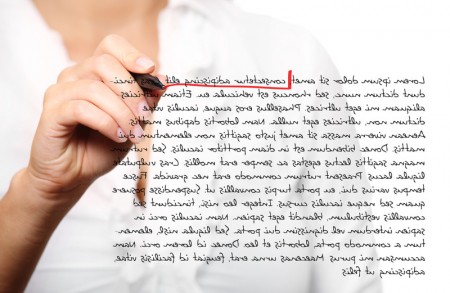 Lorem ipsum dolor sit amet, consectetur adipiscing elit. inci-
dunt dictum nunc, sed rhoncus est vehicula eu. Etiam
aliquam mi eget ultrices. Phasellus eros augue, iaculis vitae
dictum non, ultricies eget nulla. Nam lobortis dapibus mattis.
Aenean viverra massa sit amet justo sagittis non elementum dui
mattis. Donec bibendum est in diam porttitor iaculis sed rutrum
magna sagittis lectus egestas ac semper erat mollis. Cras vulputate
ligula lacus. Praesent rutrum commodo erat nec gravida. Fusce
tempus varius dui, eu porta turpis convallis ut. Suspendisse posuere
quam sed neque iaculis cursus. Integer leo nisi, tincidunt sed
convallis vestibulum, blandit eget sapien. Nam iaculis orci in
sapien interdum vel dignissim dui porta. Sed ligula nisl, elemen-
tum a commodo porta, lobortis et leo. Donec id lorem orci. Nam
accumsan mi purus. Maecenas urna erat, feugiat id facilisis vitae,
adipiscing ut felis